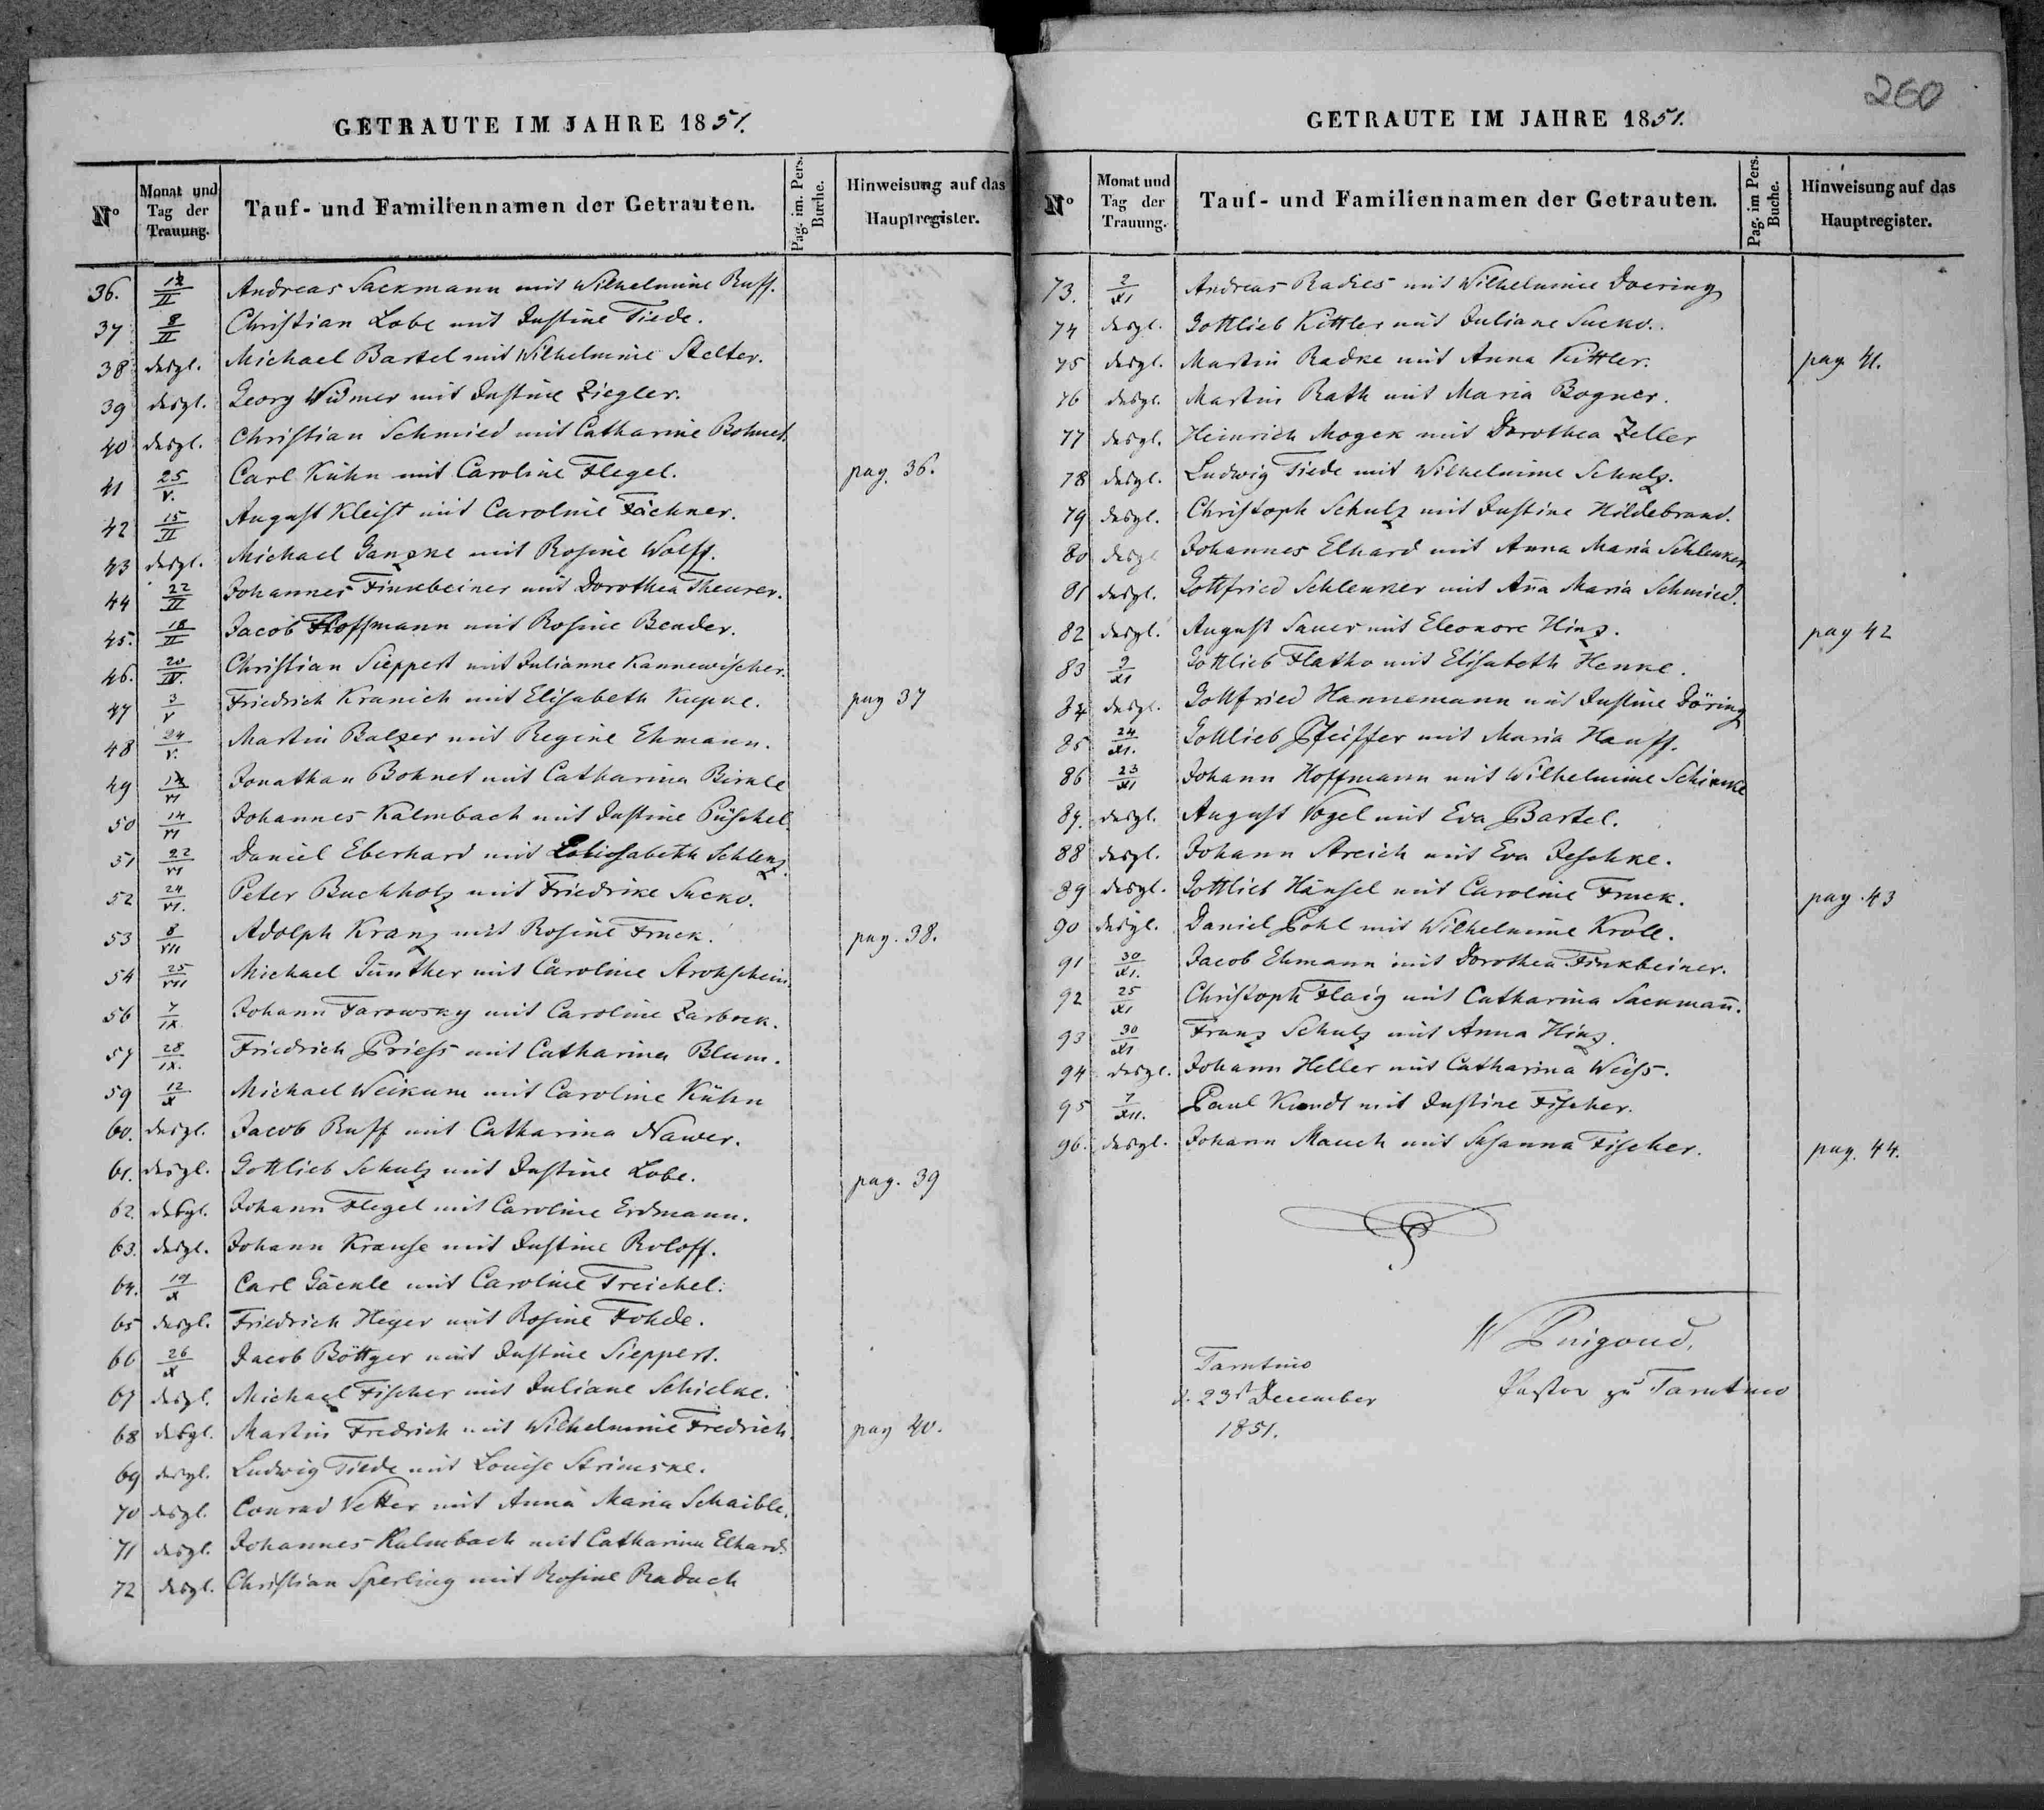 260
GETRAUTE IM JAHRE 1851.
Nº Monat und Tag der Trauung. Tauf- und Familiennamen der Getrauten. Pag. im. Pers. Buche. Hinweisung auf das Hauptregister.
36. 12/II Andreas Sackmann mit Wilhelmine Ruff.
37 8/II Christian Lobe mit Justine Tiede.
38 desgl. Michael Bartel mit Wilhelmine Stelter.
39 desgl. Georg Widmer mit Justine Ziegler.
40 desgl. Christian Schmied mit Catharine Bohnet.
41 25/V. Carl Kühn mit Caroline Flegel. pag. 36.
42 15/II August Kleist mit Caroline Fächner.
43 desgl. Michael Ganzke mit Rosine Wolff.
44 22/II Johannes Finkbeiner mit Dorothea Theurer.
45. 18/II Jacob Hoffmann mit Rosine Bender.
46. 20/IV. Christian Sieppert mit Julianne Kannewischer.
47 3/V Friedrich Kranich mit Elisabeth Kupke. pag 37
48 24/V. Martin Balzer mit Regine Ehmann.
49 /VI Jonathan Bohnet mit Catharina Birkle
50 14/VI Johannes Kalmbach mit Justine Püschel.
51 22/VI Daniel Eberhard mit Schlenz.
52 24/VI. Peter Buchholz mit Friedrike Sucko.
53 8/VII Adolph Kranz mit Rosine Fruck. pag. 38.
54 25/VII Michael Günther mit Caroline Strohschein.
56 7/IX. Johann Farowsky mit Caroline Zarbock.
57 28/IX. Friedrich Priess mit Catharina Blum.
59 12/X Michael Weikum mit Caroline Kühn
60. desgl. Jacob Ruff mit Catharina Nawer.
61. desgl. Gottlieb Schulz mit Justine Lobe. pag. 39
62. desgl. Johann Flegel mit Caroline Erdmann.
63. desgl. Johann Krause mit Justine Roloff.
64. 19/X Carl Gäckle mit Caroline Treichel.
65 desgl. Friedrich Heyer mit Rosine Fohde.
66 26/X Jacob Böttger mit Justine Sieppert.
67 desgl. Michael Fischer mit Juliane Schielke.
68 desgl. Martin Fredrich mit Wilhelmine Fredrich. pag 40.
69 desgl. Ludwig Tiede mit Louise Strimske.
70 desgl. Conrad Vetter mit Anna Maria Schaible.
71 desgl. Johannes Kalmbach mit Catharina Elhard.
72 desgl. Christian Sperling mit Rosine Radach
GETRAUTE IM JAHRE 1851.
Nº Monat und Tag der Trauung. Tauf- und Familiennamen der Getrauten. Pag. im Pers. Buche. Hinweisung auf das Hauptregister.
73. 2/XI Andreas Radies mit Wilhelmine Doering
74 desgl. Gottlieb Kittler mit Juliane Sucko.
75 desgl. Martin Radke mit Anna Kittler. pag. 41.
76 desgl. Martin Rath mit Maria Bogner.
77 desgl. Heinrich Mogck mit Dorothea Zeller
78 desgl. Ludwig Tiede mit Wilhelmine Schulz.
79 desgl. Christoph Schulz mit Justine Hildebrand.
80 desgl Johannes Elhard mit Anna Maria Schlenker
81 desgl. Gottfried Schlenker mit Aña Maria Schmied.
82 desgl. August Sauer mit Eleonore Hinz. pag 42
83 9/XI Gottlieb Flatho mit Elisabeth Henke.
84 desgl. Gottfried Hannemann mit Justine Döring
85 24/XI. Gottlieb Pfeiffer mit Maria Hauff.
86 23/XI Johann Hoffmann mit Wilhelmine Schimke
87. desgl. August Vogel mit Eva Bartel.
88 desgl. Johann Streich mit Eva Jeschke.
89 desgl. Gottlieb Hänsel mit Caroline Fruck. pag. 43
90 desgl. Daniel Pohl mit Wilhelmine Kroll.
91 30/XI. Jacob Ehmann mit Dorothea Finkbeiner.
92 25/XI Christoph Flaig mit Catharina Sackmañ.
93 30/XI Franz Schulz mit Anna Hinz.
94 desgl. Johann Heller mit Catharina Weiss.
95 7/XII. Paul Kundt mit Justine Fischer.
96. desgl. Johann Mauch mit Susanna Fischer. pag. 44.
W Pingoud,
Pastor zu Tarutino
Tarutino
d. 23t December
1851.